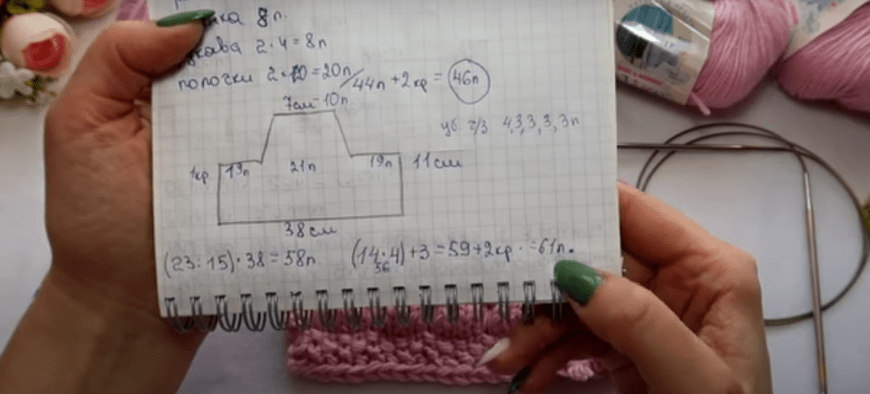 8п.
2·4=8п
полочки 2×10=20п/44п+2кр=46п
7см-10п
уб ч/з 4,3,3,3,3п
1кр 19п 21п 19п 11см
38см
(23:15)·38=58п (14·4)+3=59+2кр.=61п.
56